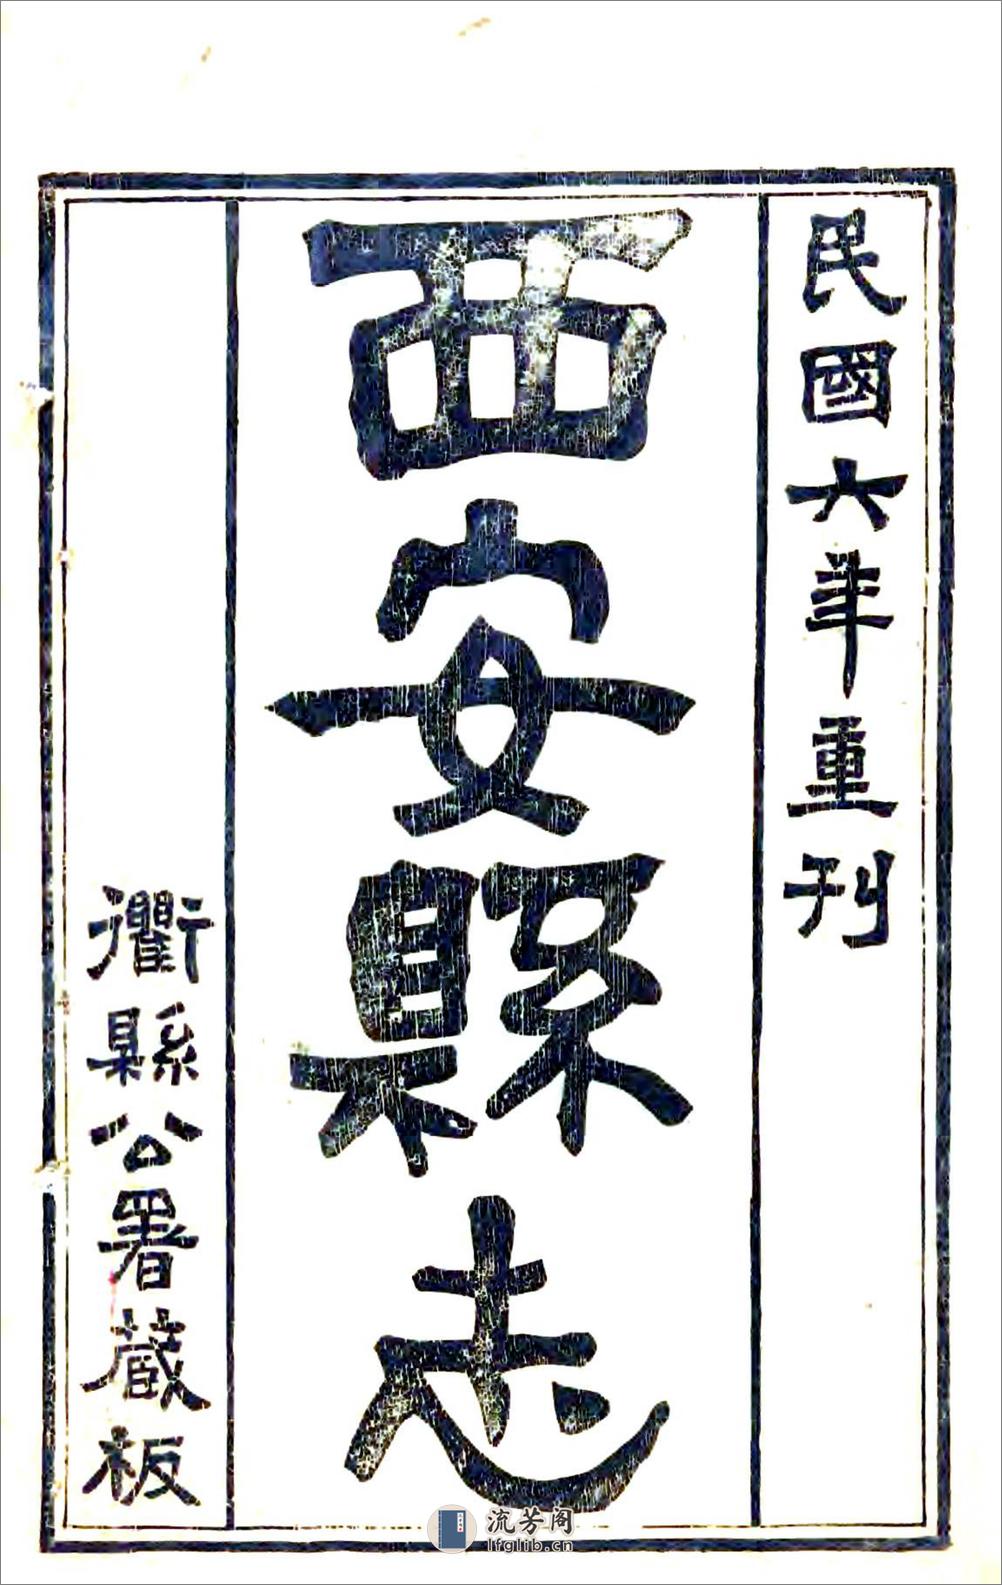 民國六年重刊
西安縣志
衢縣公署藏板
流芳阁
lfglib.cn